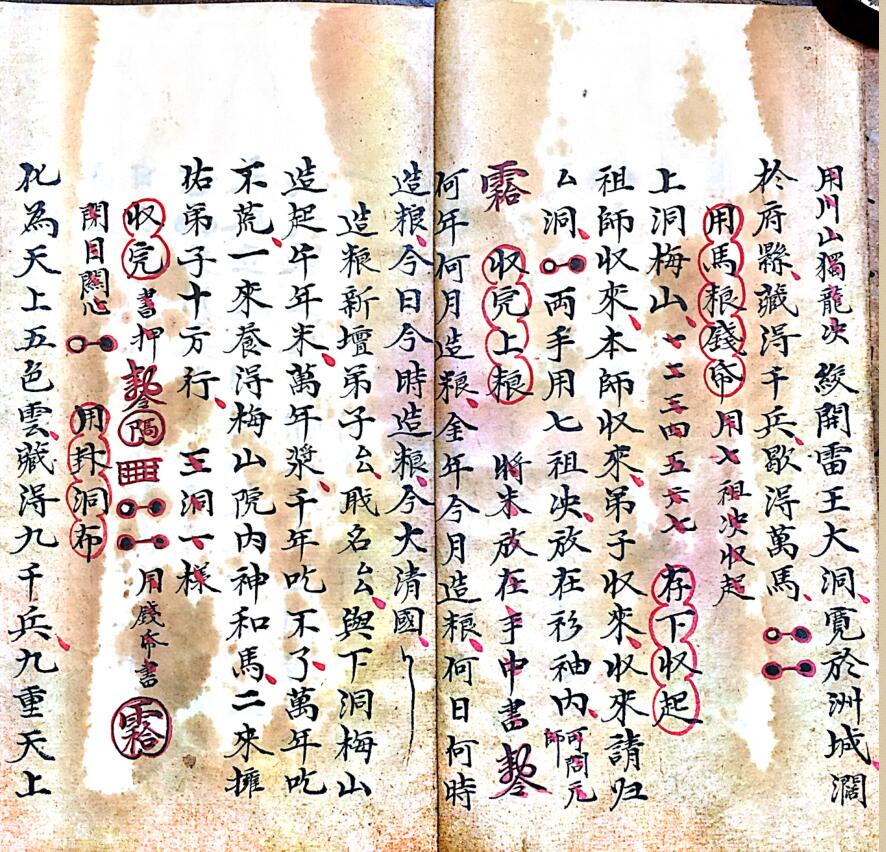 用川山獨龍决絞開雷王大洞寬於洲城濶
於府縣藏淂千兵歇得萬馬
用馬粮錢帋用七祖决收起
上洞梅山一二三四五六七存下收起
祖師收來本師收來弟子收來收來請归
厶洞両手用七祖决放在衫袖内可問元師
收完上粮將米放在手中書
何年何月造粮金年今月造粮何日何時
造粮今日今時造粮今大清國
造粮新壇弟子厶戝名厶與下洞梅山
造起午年米萬年漿千年吃不了萬年吃
不荒一來养得梅山院内神和馬二來擁
佑弟子十方行三洞一樣
收完書押用錢帋書
閑目關心用封洞布
化為天上五色雲藏淂九千兵九重天上